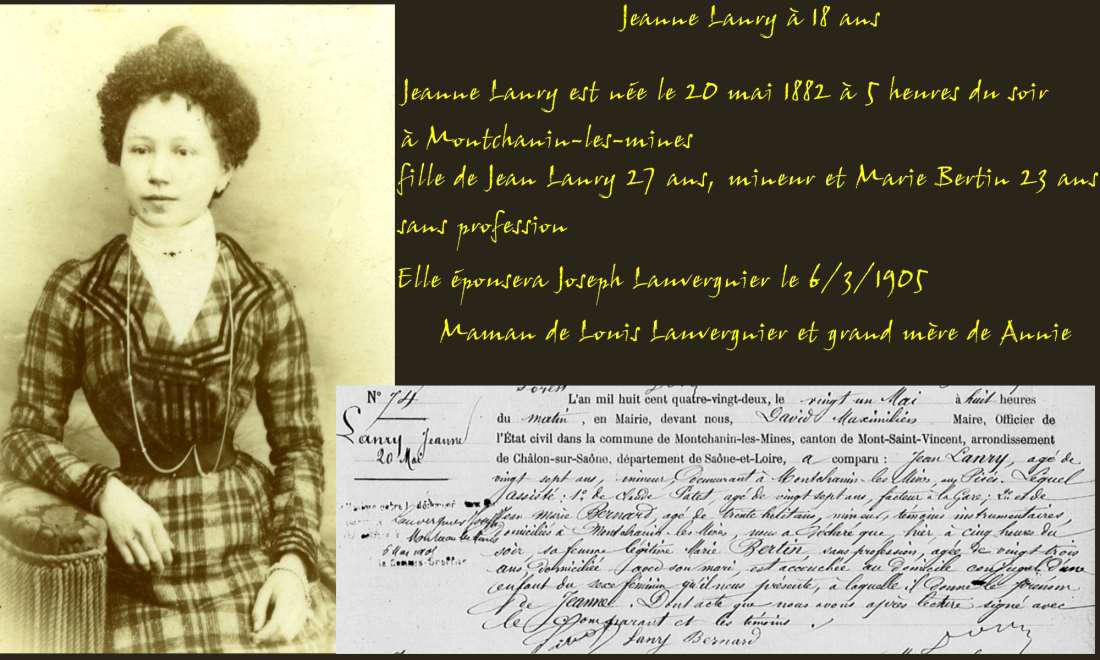 Jeanne Lanry à 18 ans
Jeanne Lanry est née le 20 mai 1882 à 5 heures du soir
à Montchanin-les-mines
fille de Jean Lanry 27 ans, mineur et Marie Bertin 23 ans
sans profession
Elle épousera Joseph Lauvergnier le 6/3/1905
Maman de Louis Lauvergnier et grand mère de Annie
N° 74
Lanry Jeanne
20 Mai
L'an mil huit cent quatre-vingt-deux, le vingt un Mai à huit heures
du matin, en Mairie, devant nous, David Maximilien Maire, Officier de
l'État civil dans la commune de Montchanin-les-Mines, canton de Mont-Saint-Vincent, arrondissement
de Châlon-sur-Saône, département de Saône-et-Loire, a comparu : Jean Lanry, agé de
vingt sept ans, mineur demeurant à Montchanin-les-Mines, aux Lequel
assisté : 1° de agé de vingt sept ans, facteur à la Gare ; 2° et de
Jean Marie Bernard, agé de trente huit ans, mineur, témoins instrumentaires,
domiciliés à Montchanin-les-Mines, nous a déclaré que hier à cinq heures du
soir sa femme légitime Marie Bertin, sans profession, agée de vingt trois
ans domiciliée avec son mari est accouchée au domicile conjugal d'une
enfant du sexe féminin qu'il nous présente, à laquelle il donne le prénom
de Jeanne. Dont acte que nous avons après lecture signé avec
le Comparant et les témoins.
Lanry Bernard